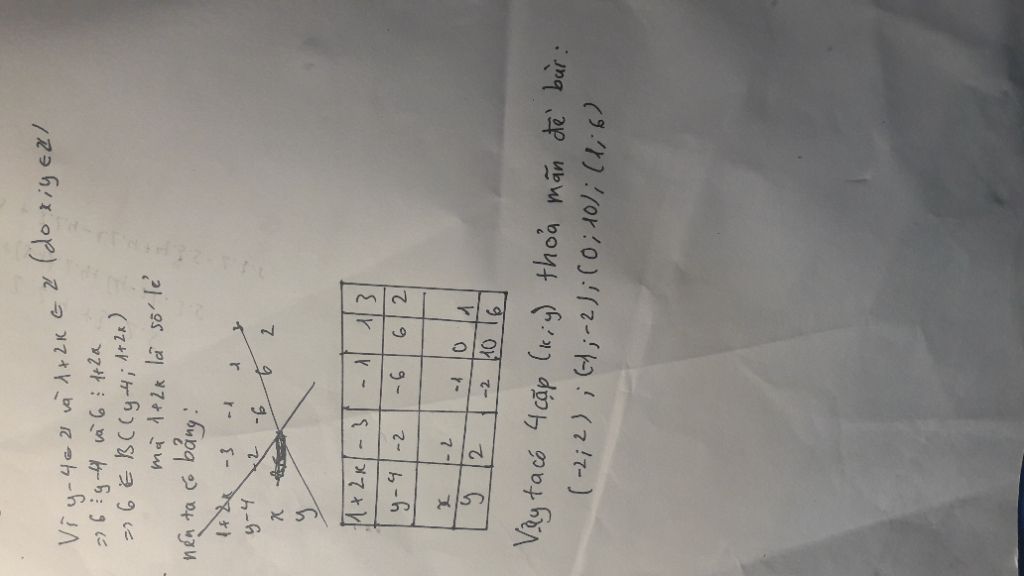 Vì y-4 ∈ Z và 1+2x ∈ Z (do x;y ∈ Z)
=> 6 ⋮ y-4 và 6 ⋮ 1+2x
=> 6 ∈ B((y-4; 1+2x)
mà 1+2x là số lẻ
nên ta có bảng:
1+2x -3 -1 1
y-4 -2 -6 6 2
x
y
1+2x -3 -1 1 3
y-4 -2 -6 6 2
x -2 -1 0 1
y 2 -2 10 6
Vậy ta có 4 cặp (x;y) thoả mãn đề bài:
(-2;2); (-1;-2); (0;10); (1;6)